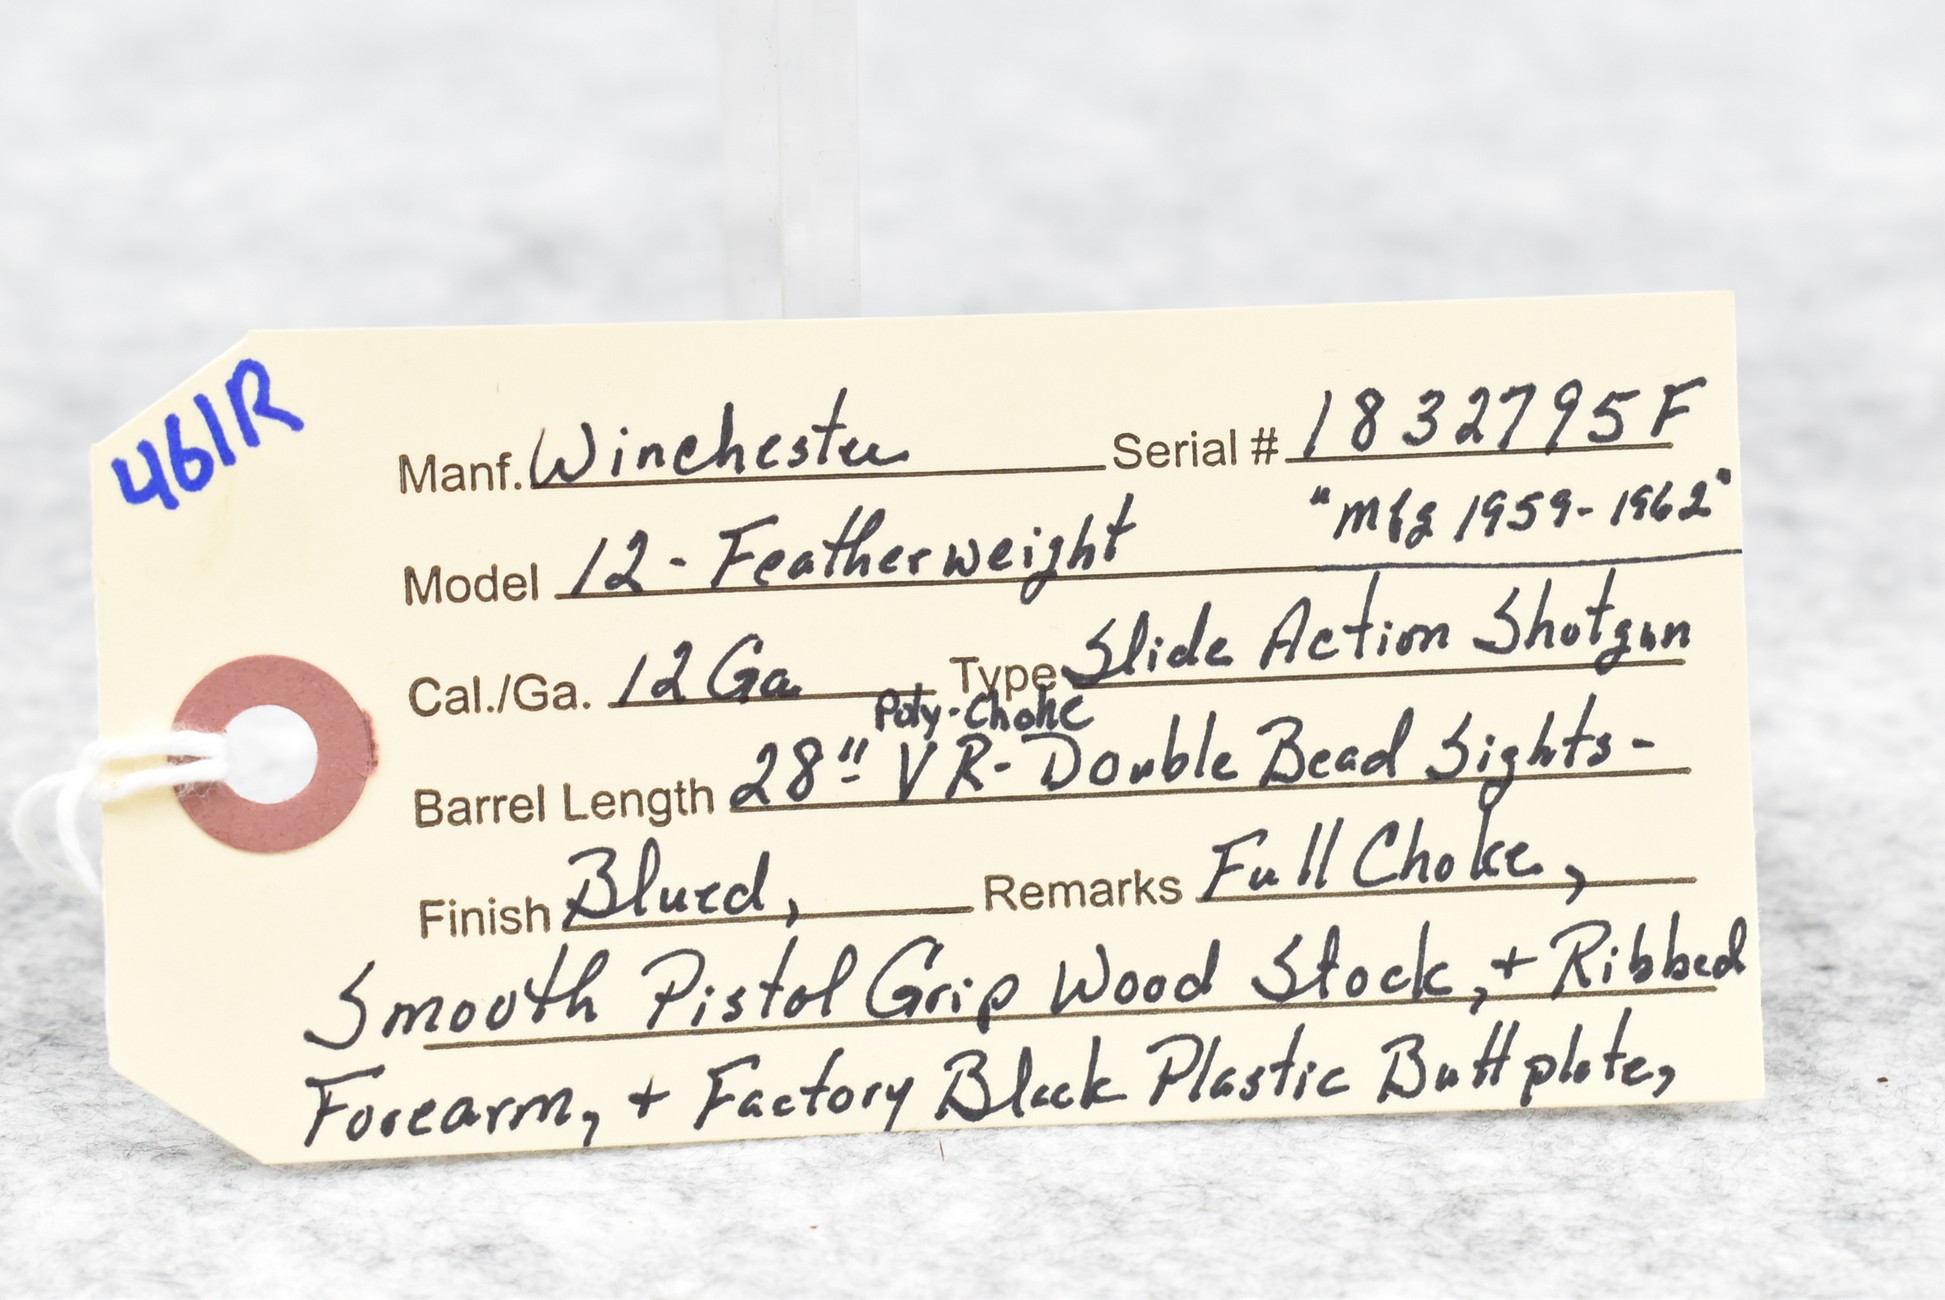 461R
Manf. Winchester Serial # 1832795F
"Mfg 1959-1962"
Model 12-Featherweight
Cal./Ga. 12 Ga Type Slide Action Shotgun
Poly-Choke
Barrel Length 28" VR-Double Bead Sights-
Finish Blued, Remarks Full Choke,
Smooth Pistol Grip Wood Stock, + Ribbed
Forearm, + Factory Black Plastic Buttplate,